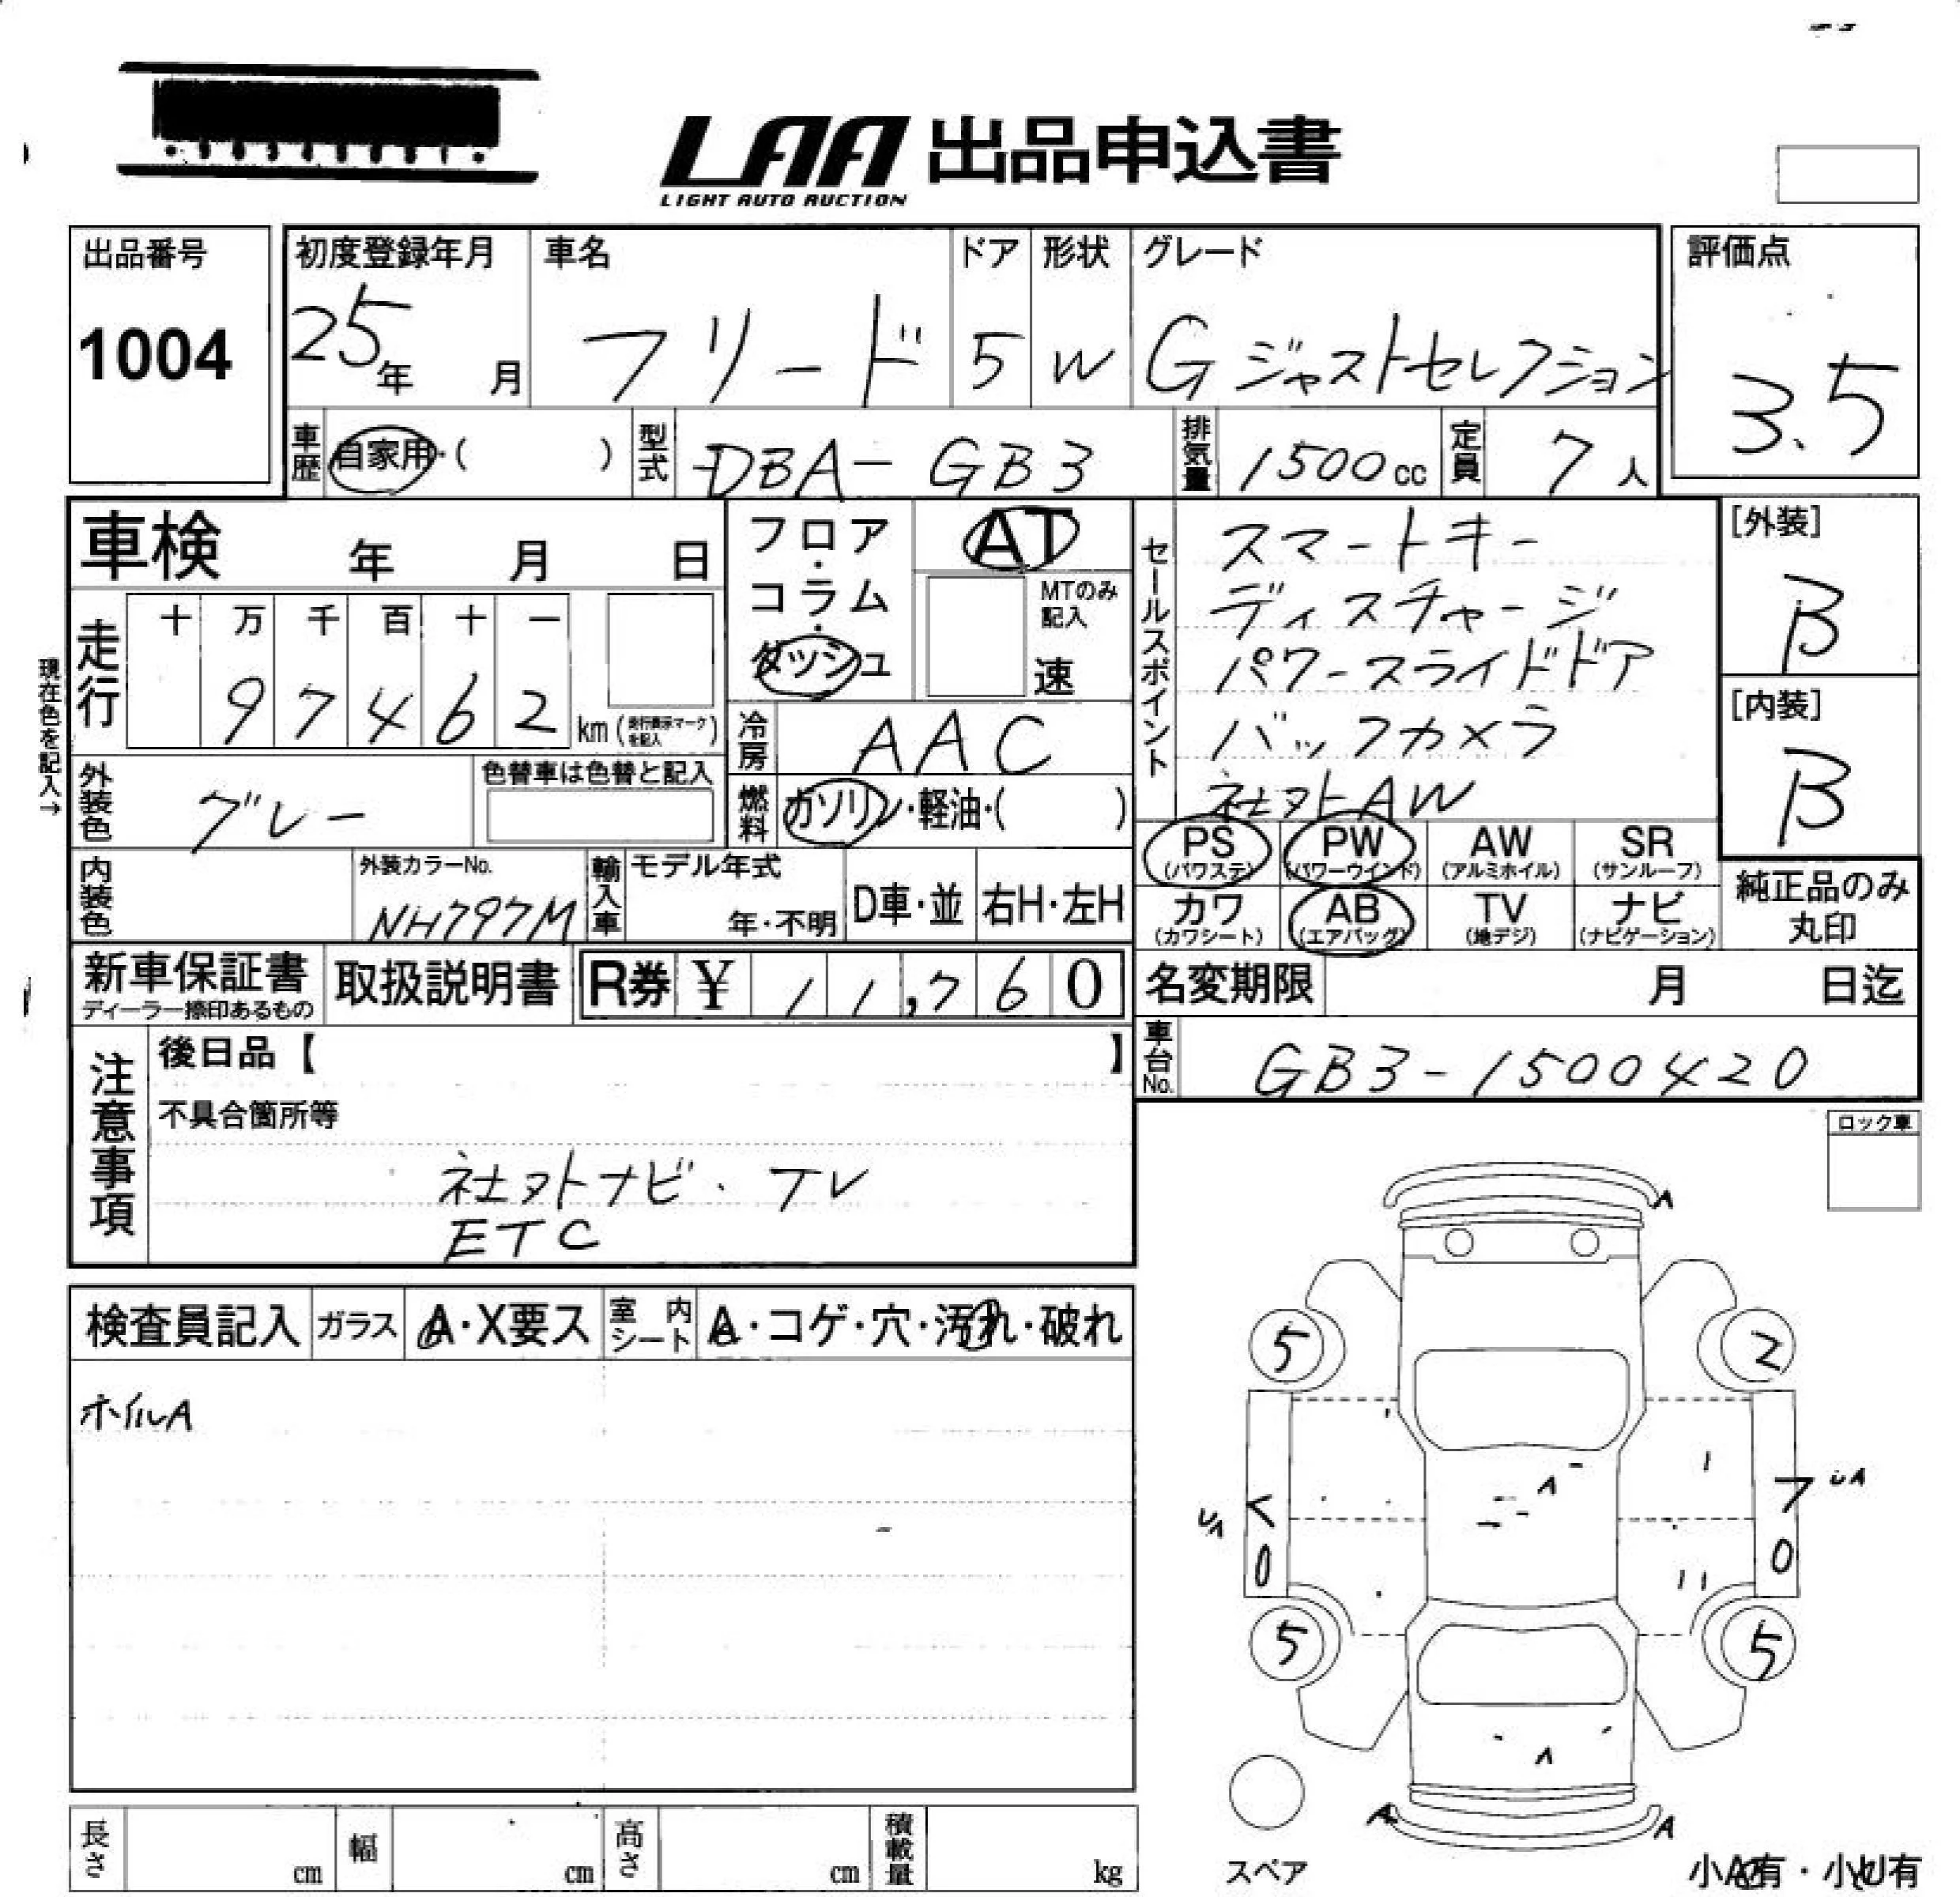 LAA 出品申込書
LIGHT AUTO AUCTION
出品番号
1004
初度登録年月
25年 月
車名
フリード
ドア
5
形状
W
グレード
Gジャストセレクション
評価点
3.5
車歴 自家用・( )
型式 DBA-GB3
排気量 1500cc
定員 7人
車検 年 月 日
フロア・コラム・ダッシュ
AT
MTのみ記入
速
セールスポイント
スマートキー
ディスチャージ
パワースライドドア
バックカメラ
社外AW
[外装]
B
[内装]
B
現在色を記入→
走行
十 万 千 百 十 一
97462 km (走行表示マークを記入)
冷房 AAC
外装色 グレー
色替車は色替と記入
燃料 ガソリン・軽油・( )
PS (パワステ)
PW (パワーウインド)
AW (アルミホイル)
SR (サンルーフ)
カワ (カワシート)
AB (エアバッグ)
TV (地デジ)
ナビ (ナビゲーション)
純正品のみ丸印
内装色
外装カラーNo.
NH797M
輸入車
モデル年式
年・不明
D車・並
右H・左H
新車保証書
ディーラー捺印あるもの
取扱説明書
R券 ¥ 11,760
名変期限 月 日迄
車台No. GB3-1500420
注意事項
後日品【 】
不具合箇所等
社外ナビ・TV
ETC
ロック車
検査員記入
ガラス A・X要ス
室内シート A・コゲ・穴・汚れ・破れ
ホイルA
A
5 2
A
く フ UA
0 0
5 5
A
A A
スペア
長さ cm
幅 cm
高さ cm
積載量 kg
小A有・小U有